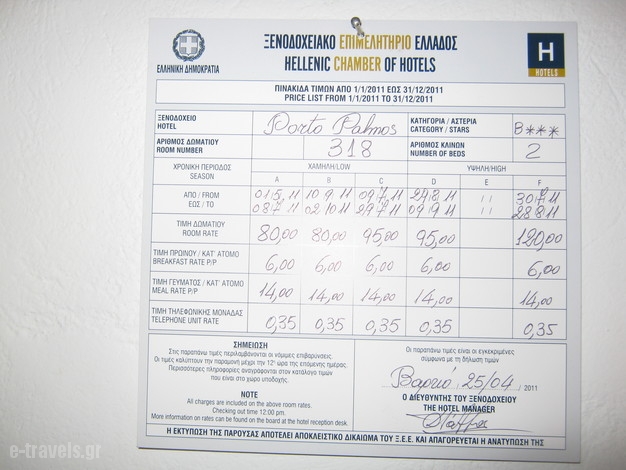 ΞΕΝΟΔΟΧΕΙΑΚΟ ΕΠΙΜΕΛΗΤΗΡΙΟ ΕΛΛΑΔΟΣ
HELLENIC CHAMBER OF HOTELS
ΕΛΛΗΝΙΚΗ ΔΗΜΟΚΡΑΤΙΑ
H
HOTELS
ΠΙΝΑΚΙΔΑ ΤΙΜΩΝ ΑΠΟ 1/1/2011 ΕΩΣ 31/12/2011
PRICE LIST FROM 1/1/2011 TO 31/12/2011
ΞΕΝΟΔΟΧΕΙΟ
HOTEL
Porto Palmos
ΚΑΤΗΓΟΡΙΑ / ΑΣΤΕΡΙΑ
CATEGORY / STARS
B***
ΑΡΙΘΜΟΣ ΔΩΜΑΤΙΟΥ
ROOM NUMBER
318
ΑΡΙΘΜΟΣ ΚΛΙΝΩΝ
NUMBER OF BEDS
2
ΧΡΟΝΙΚΗ ΠΕΡΙΟΔΟΣ
SEASON
ΧΑΜΗΛΗ/LOW
ΥΨΗΛΗ/HIGH
A B C D E F
ΑΠΟ / FROM 01.5.11 10.9.11 09.7.11 24.8.11 11 30.7.11
ΕΩΣ / TO 08.7.11 02.10.11 29.7.11 09.9.11 11 28.8.11
ΤΙΜΗ ΔΩΜΑΤΙΟΥ
ROOM RATE
80,00 80,00 95,00 95,00 120,00
ΤΙΜΗ ΠΡΩΙΝΟΥ / ΚΑΤ' ΑΤΟΜΟ
BREAKFAST RATE P/P
6,00 6,00 6,00 6,00 6,00
ΤΙΜΗ ΓΕΥΜΑΤΟΣ / ΚΑΤ' ΑΤΟΜΟ
MEAL RATE P/P
14,00 14,00 14,00 14,00 14,00
ΤΙΜΗ ΤΗΛΕΦΩΝΙΚΗΣ ΜΟΝΑΔΑΣ
TELEPHONE UNIT RATE
0,35 0,35 0,35 0,35 0,35
ΣΗΜΕΙΩΣΗ
Στις παραπάνω τιμές περιλαμβάνονται οι νόμιμες επιβαρύνσεις.
Οι τιμές καλύπτουν την παραμονή μέχρι την 12η ώρα της επόμενης ημέρας.
Περισσότερες πληροφορίες αναγράφονται στον κατάλογο τιμών
που είναι στο χώρο υποδοχής.
NOTE
All charges are included on the above room rates.
Checking out time 12:00 pm.
More information on rates can be found on the board at the hotel reception desk.
Οι παραπάνω τιμές είναι οι εγκεκριμένες
σύμφωνα με τη δήλωση τιμών
25/04 / 2011
Ο ΔΙΕΥΘΥΝΤΗΣ ΤΟΥ ΞΕΝΟΔΟΧΕΙΟΥ
THE HOTEL MANAGER
Η ΕΚΤΥΠΩΣΗ ΤΗΣ ΠΑΡΟΥΣΑΣ ΑΠΟΤΕΛΕΙ ΑΠΟΚΛΕΙΣΤΙΚΟ ΔΙΚΑΙΩΜΑ ΤΟΥ Ξ.Ε.Ε. ΚΑΙ ΑΠΑΓΟΡΕΥΕΤΑΙ Η ΑΝΑΤΥΠΩΣΗ ΤΗΣ
e-travels.gr